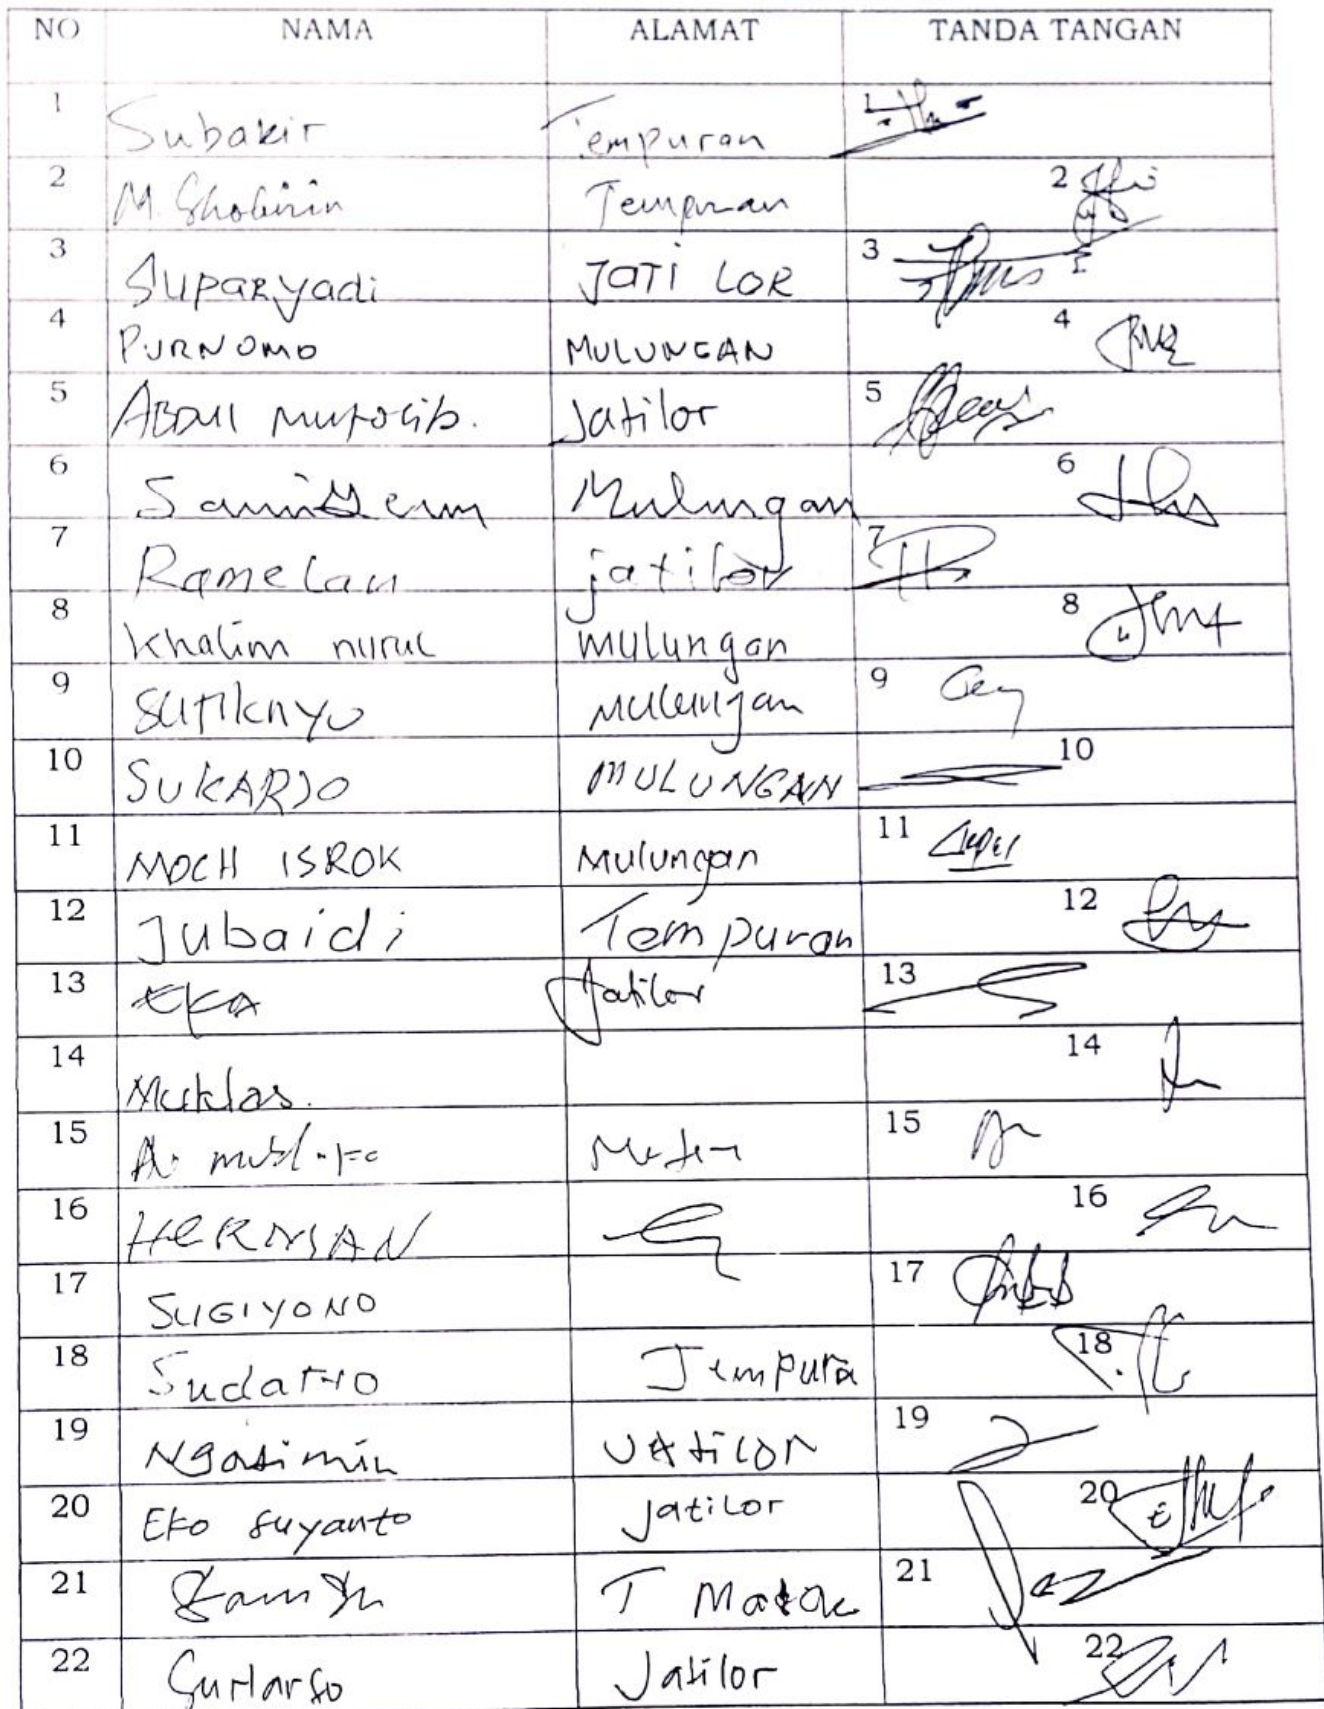 NO NAMA ALAMAT TANDA TANGAN
1 Subakir Tempuran 1
2 M. Ghobirin Tempuran 2
3 Suparyadi JATI LOR 3
4 PURNOMO MULUNGAN 4
5 ABDUL Mutolib. Jatilor 5
6 Mulungan 6
7 Ramelan jatilor 7
8 Khalim nurul mulungan 8
9 Sutiknyo Mulungan 9
10 SUKARJO MULUNGAN 10
11 MOCH ISROK Mulungan 11
12 Jubaidi Tempuran 12
13 EKA Jatilor 13
14 Muklas. 14
15 A. 15
16 HERMAN 16
17 SUGIYONO 17
18 Sudarno Tempura 18
19 Ngasimin JAtiLOR 19
20 Eko Suyanto Jatilor 20
21 T 21
22 Jatilor 22